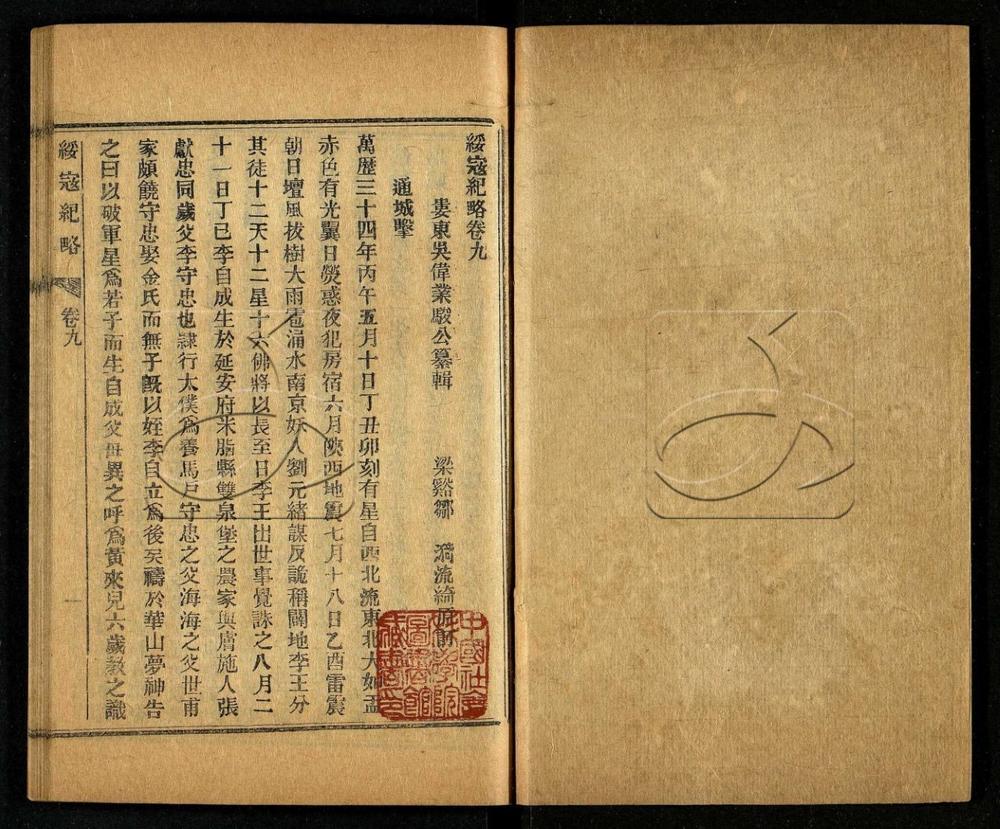 綏寇紀略卷九
婁東吳偉業駿公纂輯　梁谿鄒　漪流綺原訂
通城擊
萬歷三十四年丙午五月十日丁丑卯刻有星自西北流東北大如盂
赤色有光翼日熒惑夜犯房宿六月陝西地震七月十八日乙酉雷震
朝日壇風拔樹大雨雹涌水南京妖人劉元緒謀反詭稱闢地李王分
其徒十二天十二星十六佛將以長至日李王出世事覺誅之八月二
十一日丁巳李自成生於延安府米脂縣雙泉堡之農家與膚施人張
獻忠同歲父李守忠也隸行太僕爲養馬戶守忠之父海海之父世甫
家頗饒守忠娶金氏而無子旣以姪李自立爲後矣禱於華山夢神告
之曰以破軍星爲若子而生自成父母異之呼爲黃來兒六歲敎之識
綏寇紀略
卷九
一
中國社會科學院圖書館藏書印